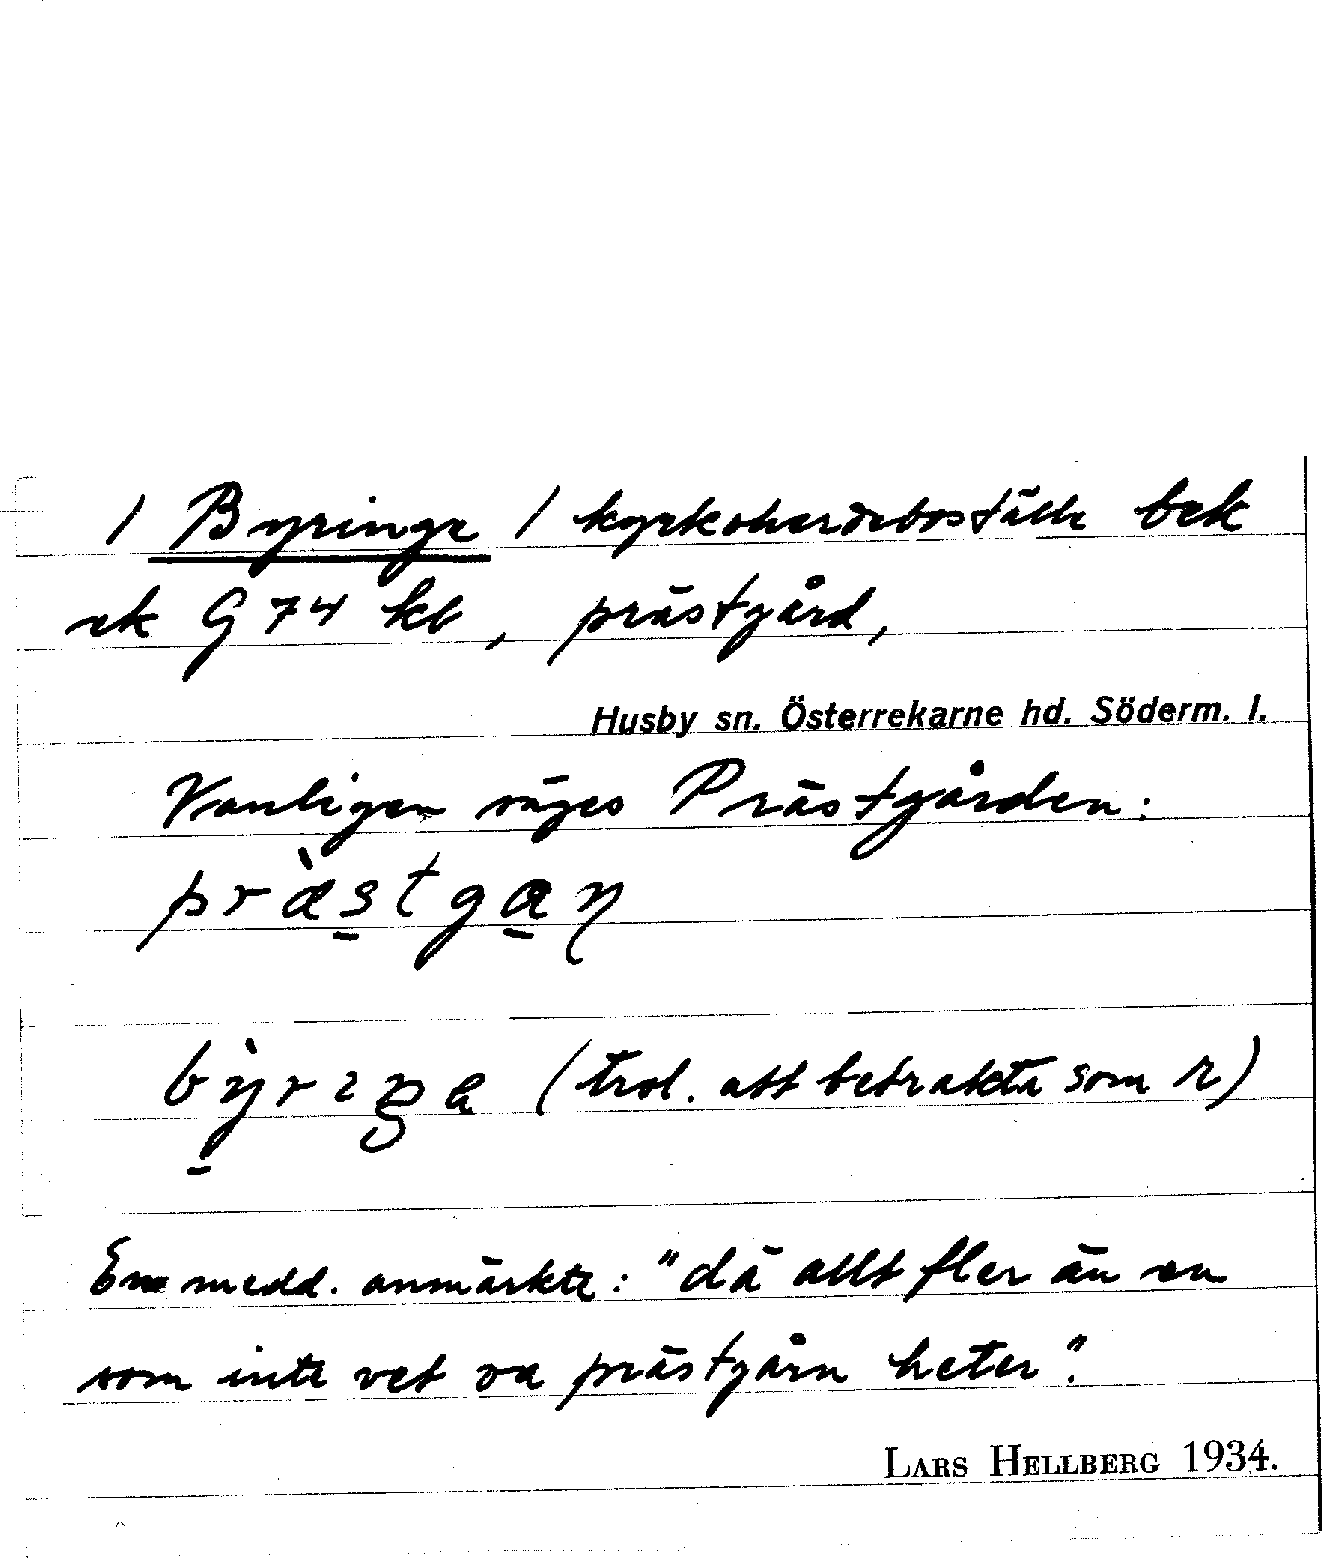 / Byringe / kyrkoherdeboställe bek
ek G 74 kb, prästgård,
Husby sn. Österrekarne hd. Söderm. l.
Vanligen säges Prästgården:
(trol. att betrakta som r)
En medd. anmärkte: "dä allt fler än en
som inte vet va prästgårn heter".
LARS HELLBERG 1934.